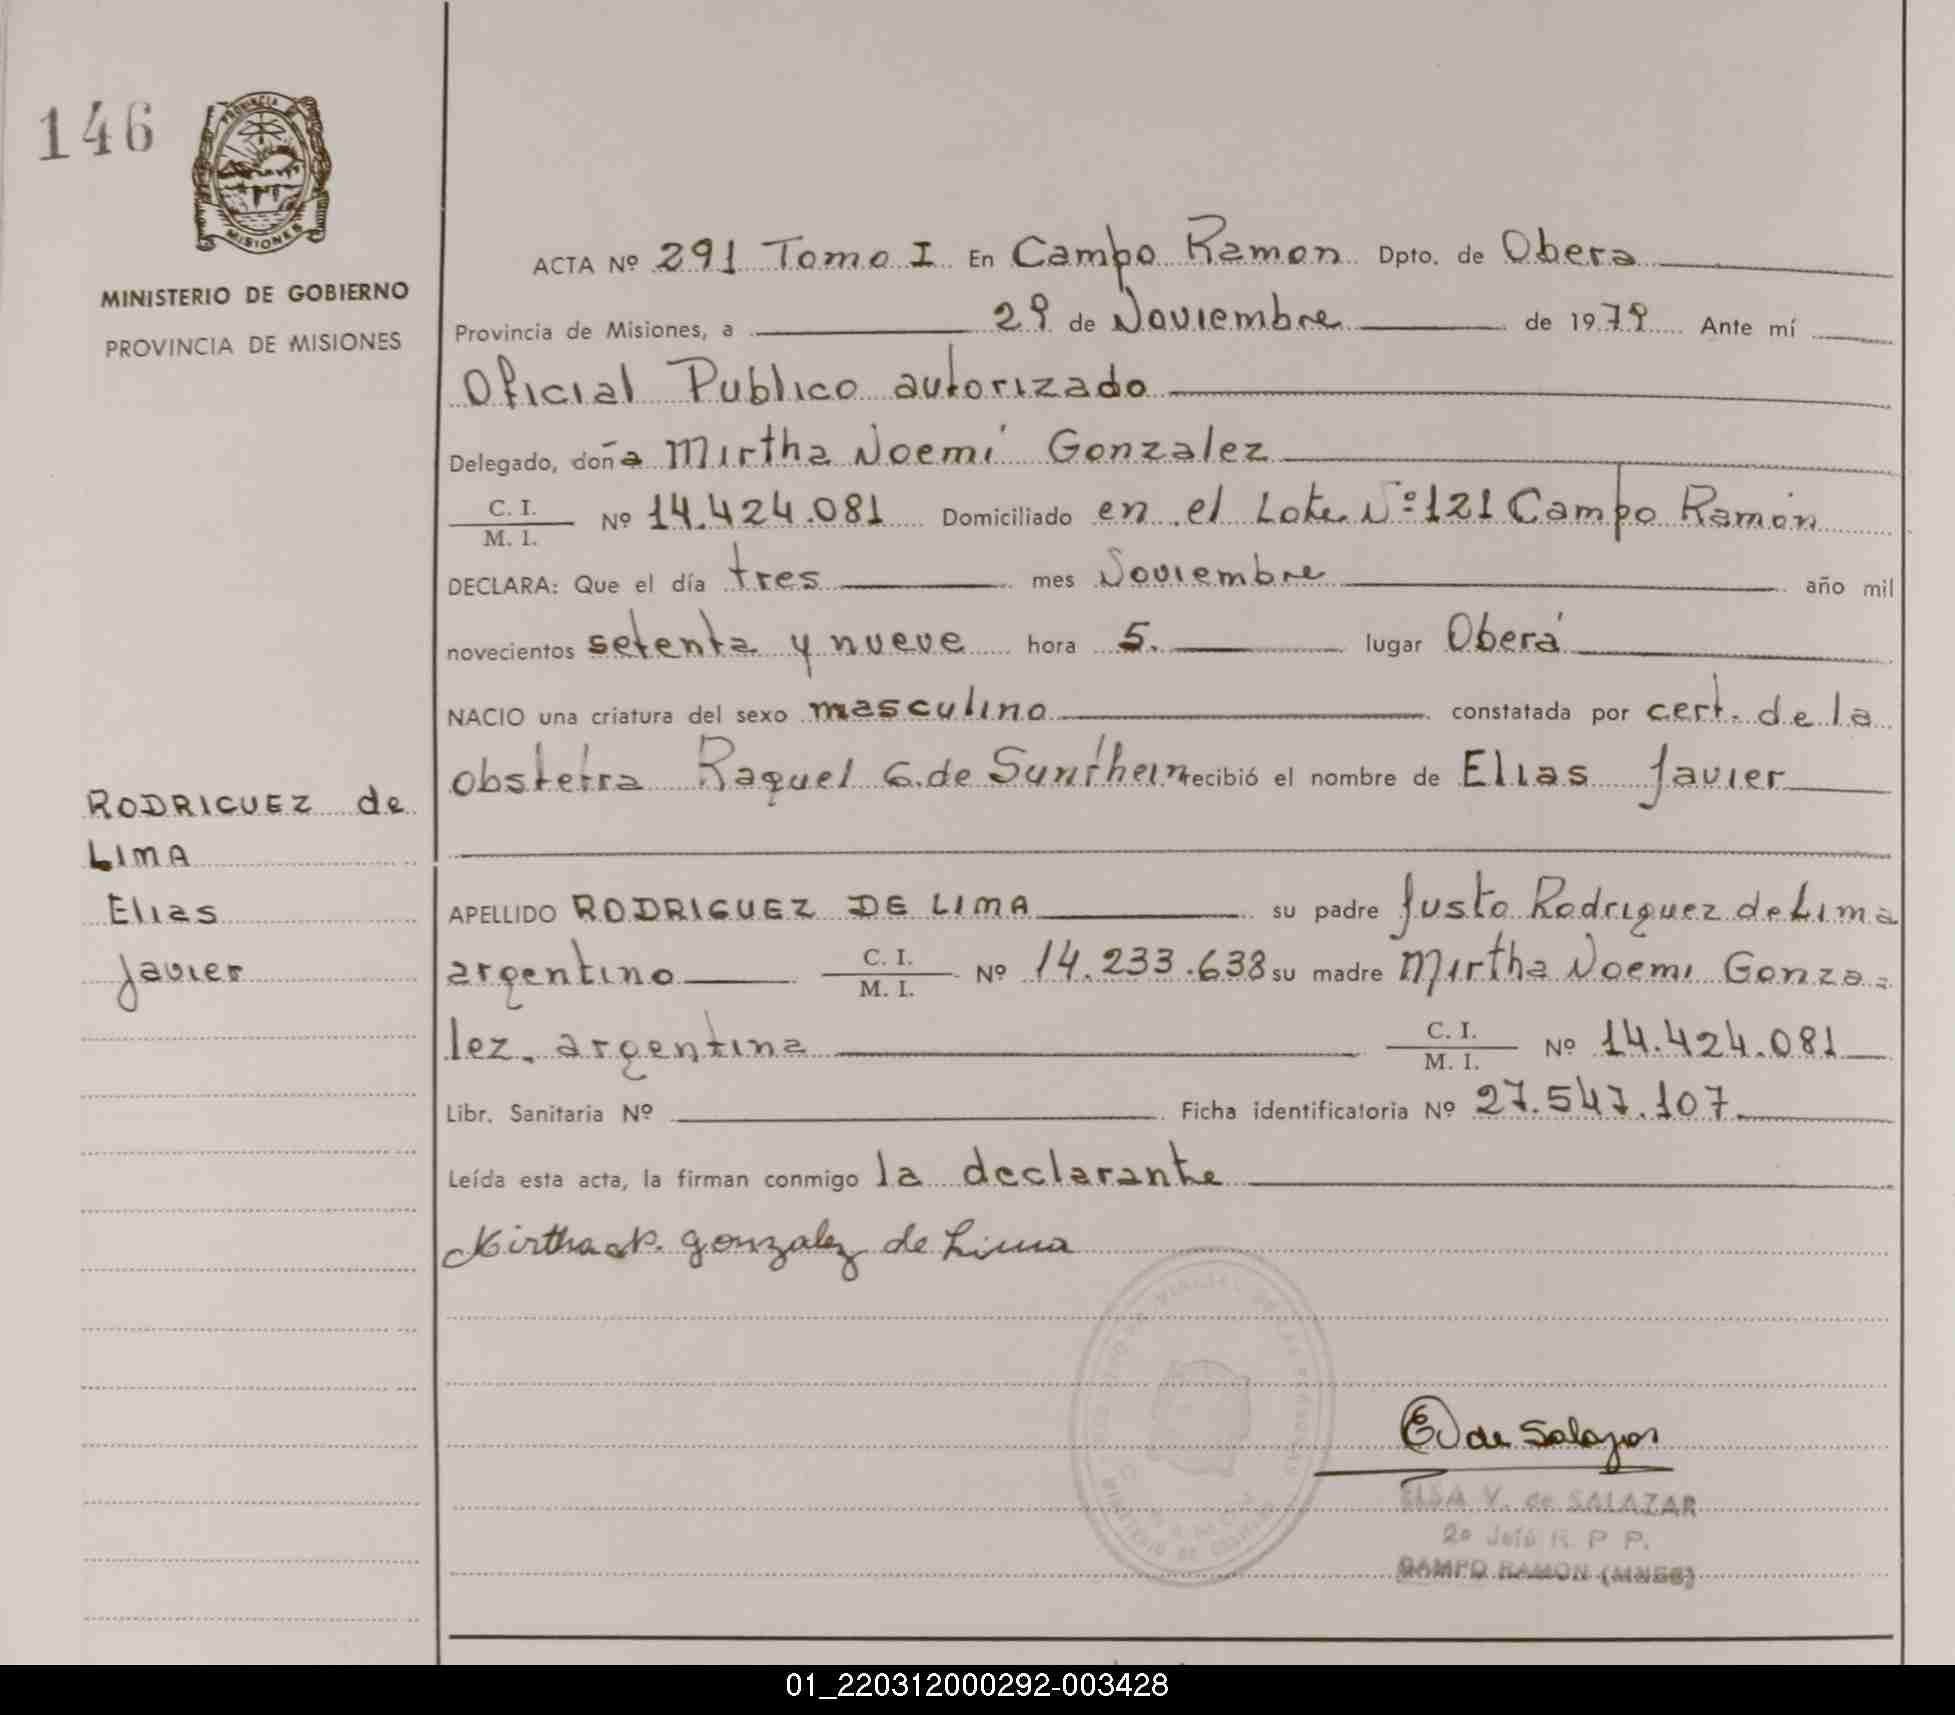 146
PROVINCIA DE
MISIONES
MINISTERIO DE GOBIERNO
PROVINCIA DE MISIONES
ACTA Nº 291 Tomo I En Campo Ramon Dpto. de Obera
Provincia de Misiones, a 29 de Noviembre de 1979 Ante mí
Oficial Publico autorizado
Delegado, doña Mirtha Noemí Gonzalez
C. I.
M. I. Nº 14.424.081 Domiciliado en el Lote Nº 121 Campo Ramón
DECLARA: Que el día tres mes Noviembre año mil
novecientos setenta y nueve hora 5. lugar Oberá
NACIO una criatura del sexo masculino constatada por cert. de la
obstetra Raquel G. de recibió el nombre de Elias Javier
RODRIGUEZ de
LIMA
Elias
Javier
APELLIDO RODRIGUEZ DE LIMA su padre Justo Rodriguez de Lima
argentino C. I.
M. I. Nº 14.233.638 su madre Mirtha Noemi Gonza=
lez. argentina C. I.
M. I. Nº 14.424.081
Libr. Sanitaria Nº Ficha identificatoria Nº 27.547.107
Leída esta acta, la firman conmigo la declarante
Mirtha N. gonzalez de Lima
E V de Salazar
ELSA V. de SALAZAR
2º Jefe R. P. P.
CAMPO RAMON (MNES)
01_220312000292-003428